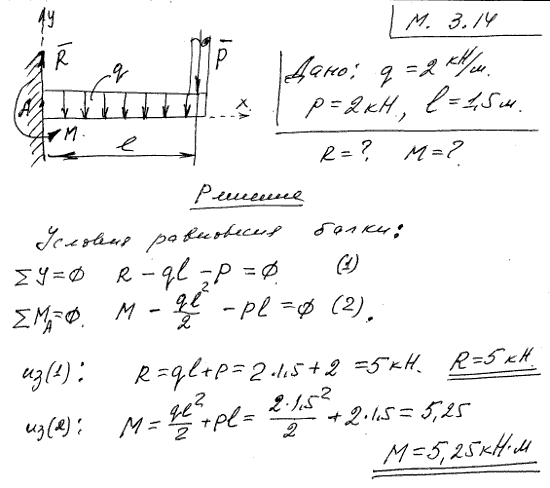 М. 3.14
y
R̄
q
P̄
A
x
M
l
Дано: q = 2 кН/м.
P = 2 кН, l = 1,5 м.
R = ? M = ?
Решение
Условия равновесия балки:
ΣY = 0 R − ql − P = 0. (1)
ΣM_A = 0. M − ql²/2 − Pl = 0 (2).
из(1): R = ql + P = 2·1,5 + 2 = 5 кН. R = 5 кН.
из(2): M = ql²/2 + Pl = 2·1,5²/2 + 2·1,5 = 5,25
M = 5,25 кН·м